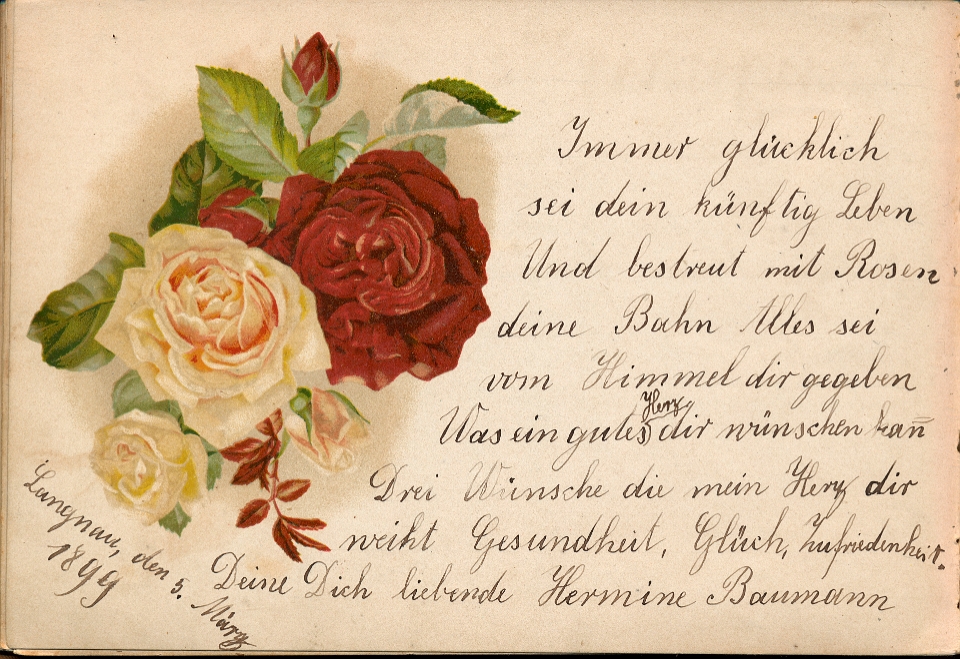 Immer glücklich
sei dein künftig Leben
Und bestreut mit Rosen
deine Bahn Alles sei
vom Himmel dir gegeben
Herz
Was ein gutes dir wünschen kan̄
Drei Wünsche die mein Herz dir
weiht Gesundheit, Glück, Zufriedenheit.
Deine Dich liebende Hermine Baumann
Langnau, den 5. März
1899